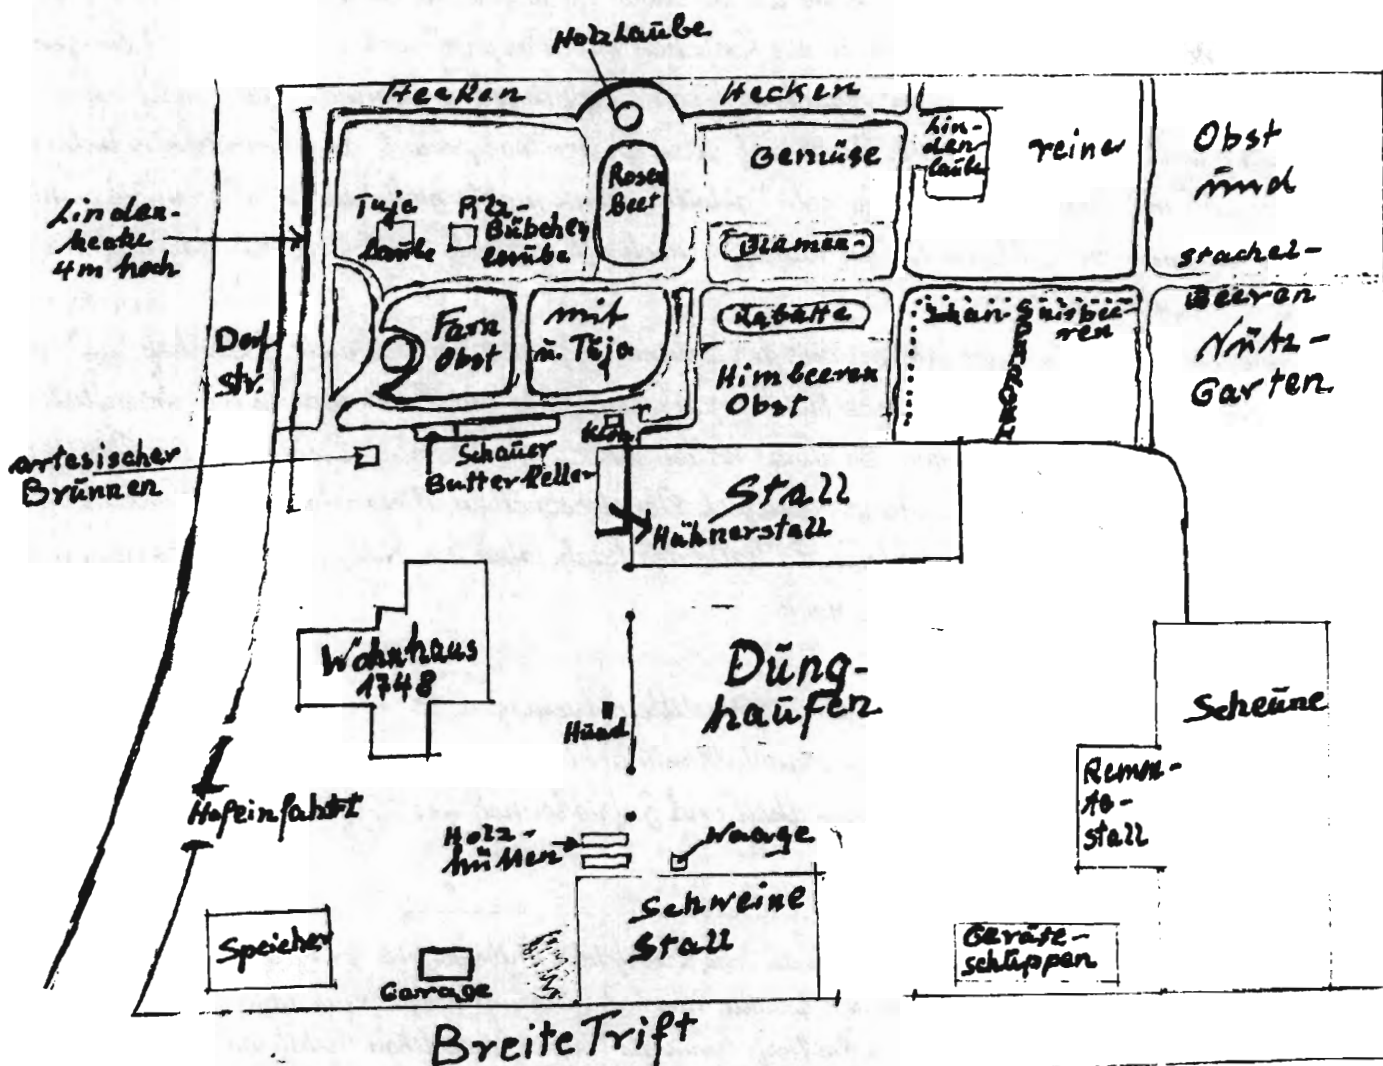 Holzlaube
Hecken
Hecken
Linden-
hecke
4m hoch
Tuja
Laube
Pilz-
Bübchen
laube
Rosen
Beet
Gemüse
Lin-
den-
laube
reiner
Obst
und
Stachel-
Beeren
Nutz-
Garten
Blumen-
Rabatte
Johan-
Spargel
ren
Dorf
str.
Farn
Obst
mit
u. Tuja
Himbeeren
Obst
artesischer
Brunnen
Schauer
Butterkeller
Stall
Hühnerstall
Wohnhaus
1748
Dung-
haufen
Hund
Scheune
Remon-
te-
stall
Hofeinfahrt
Holz-
hütten
Waage
Speicher
Garage
Schweine
Stall
Geräte-
schuppen
Breite Trift